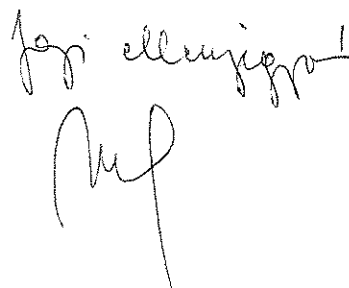 Jogi ellenjegyző!